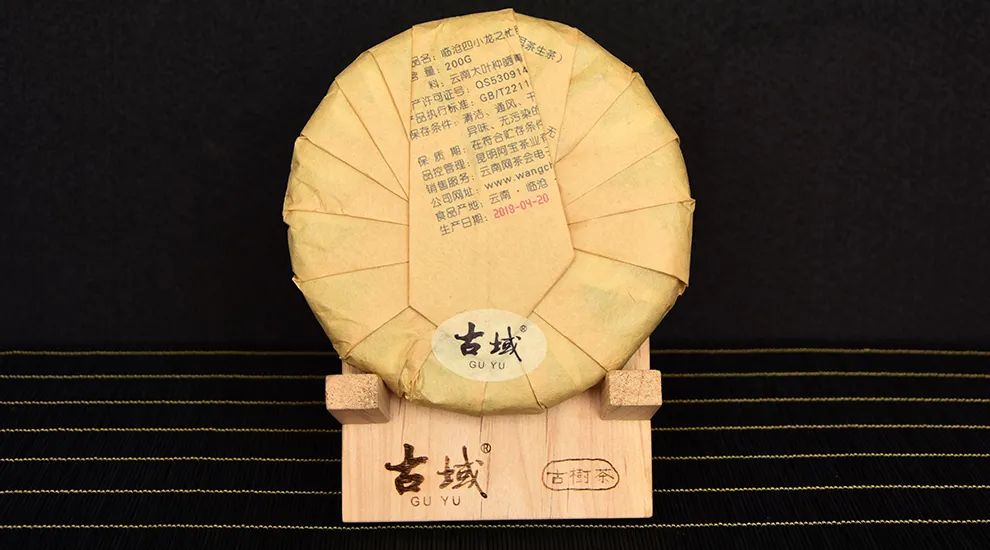 品名：临沧四小龙之忙
洱茶生茶）
含 量：200G
料：云南大叶种晒青
产许可证号：QS530914
产品执行标准：GB/T2211
保存条件：清洁、通风、干
异味、无污染的
保 质 期：在符合贮存条件
品控管理：昆明阿宝茶业有
销售服务：云南网茶会电子
公司网址：www.wangch
食品产地：云南·临沧
生产日期：2019-04-20
古域®
GU YU
古域®
GU YU
古树茶